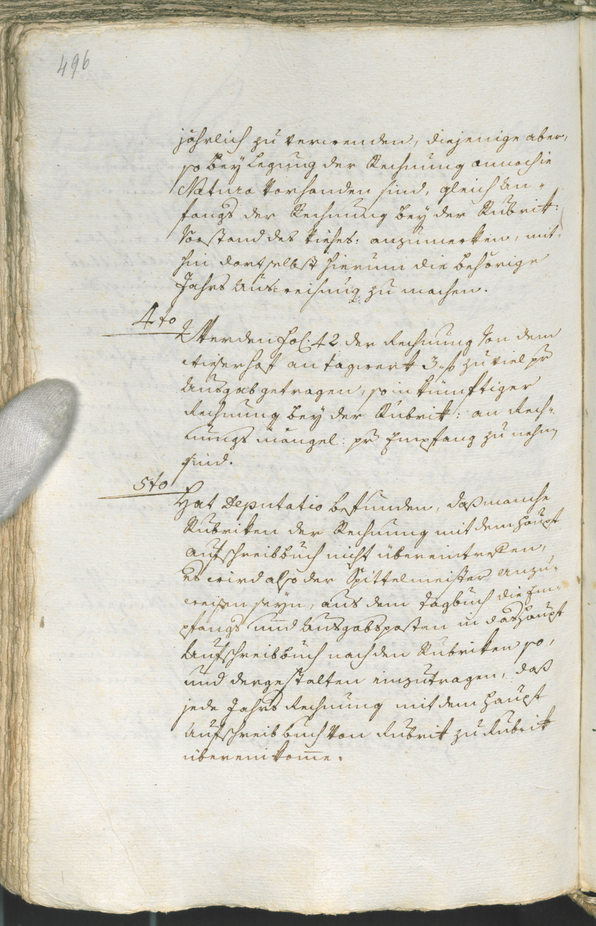 496
jährlich zu verwenden, diejenige aber,
so bey Legung der Rechnung annoch in
Natura vorhanden sind, gleich An-
fangs der Rechnung bey der Rubrik:
Vorstand des Viehes: anzumerken, mit
hin dortselbst hierum die behörige
Jahrs Ausweisung zu machen.
4to
Werden fol: 42 der Rechnung von dem
an Tagwerk 3 f zu viel pr
Ausgab getragen, so in künftiger
Rechnung bey der Rubrik: an Rech-
nungs mängel: pr Empfang zu nehm
sind.
5to
Hat Deputatio befunden, daß manche
Rubriken der Rechnung mit dem Haupt
aufschreibbuch nicht übereintreffen,
es wird also der Spittelmeister anzu-
weisen seyn, aus dem Tagbuch die Em
pfangs und Ausgabsposten in das Haupt
Aufschreibbuch nach den Rubriken so,
und dergestalten einzutragen, daß
jede Jahrs Rechnung mit dem Haupt
Aufschreibbuch von Rubrik zu Rubrik
übereinkomme.